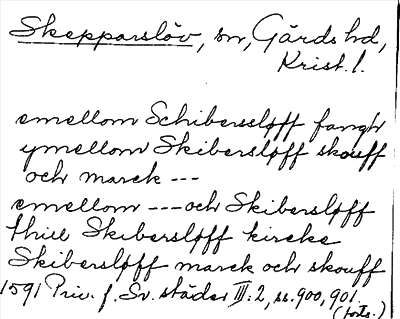 Skepparslöv, sn, Gärds hd,
Krist. l.
emellom Schibersløff fangh
ymellom Skibersløff skouff
och marck ---
emellom --- och Skibersløff
thill Skibersløff kircke
Skibersløff marck och skouff
1591 Priv. f. Sv. städer III: 2, ss. 900, 901.
(forts.)